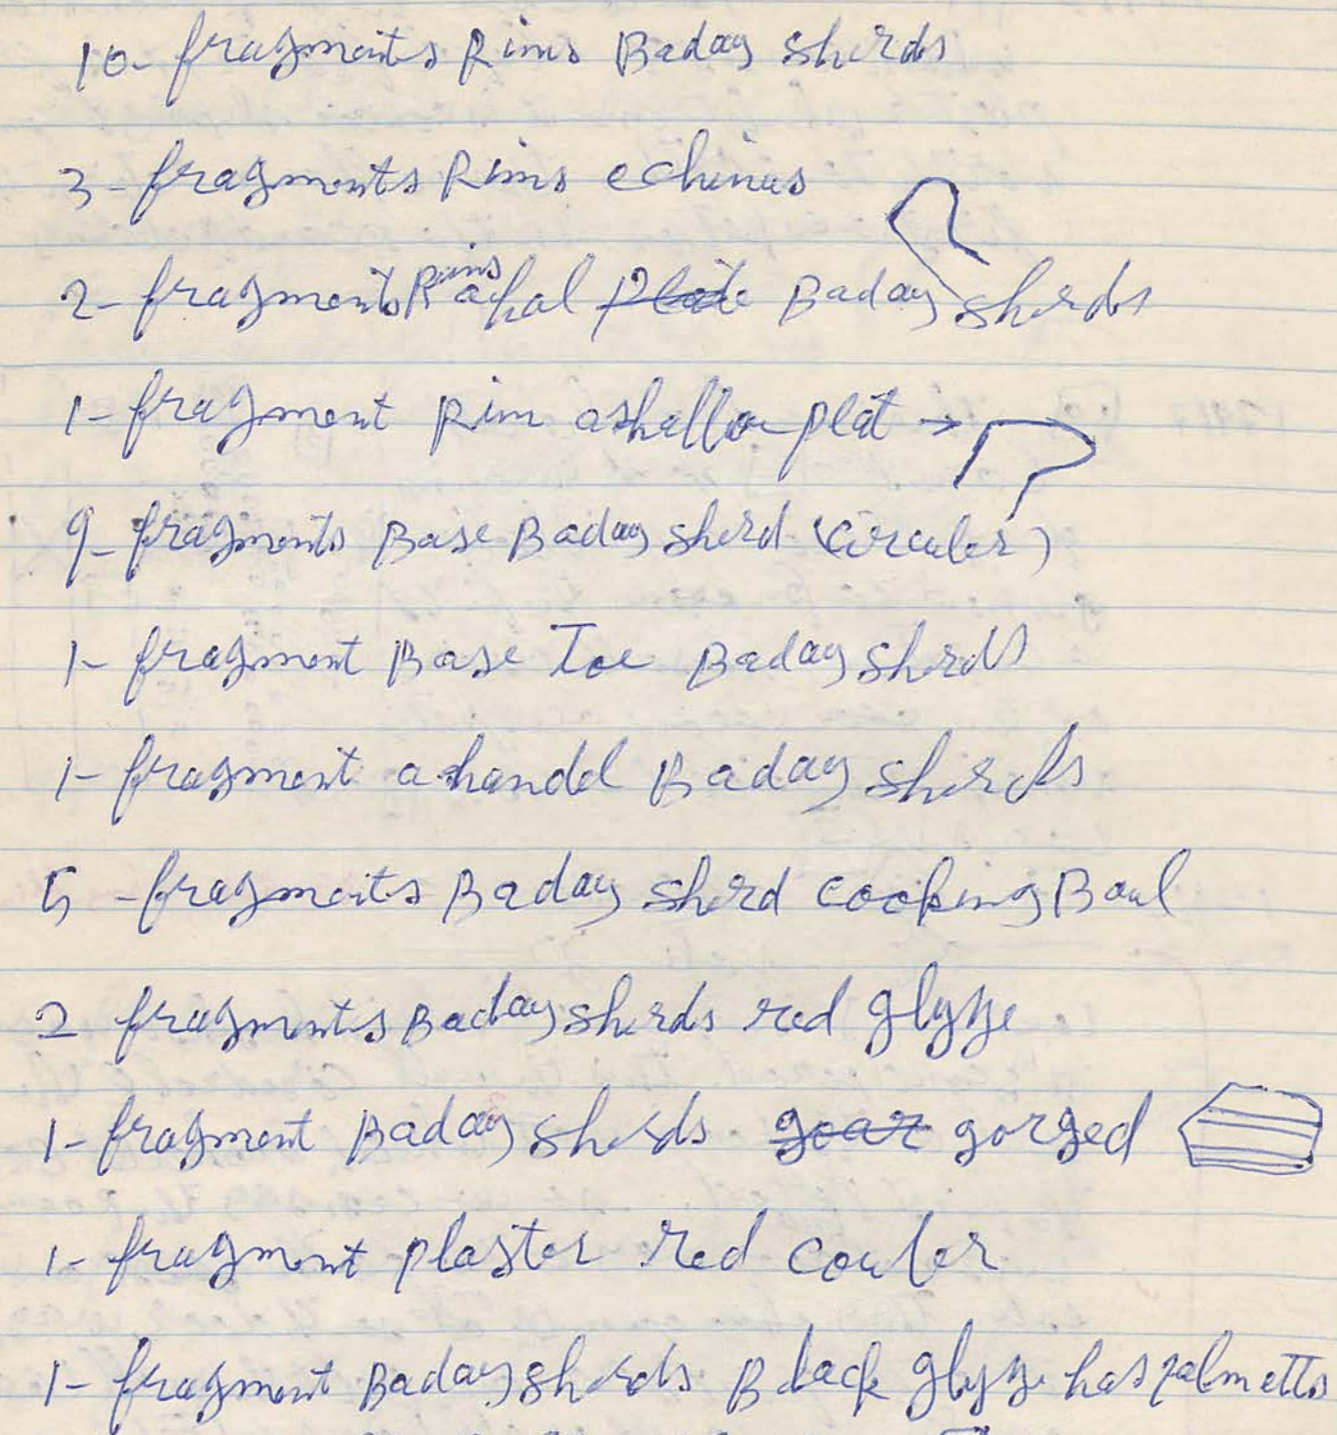 10- fragments Rims Baday sherds
3- fragments Rims echinus
2- fragments Rims Baday sherds
1- fragment Rim ashallow plat →
9- fragments Base Baday sherd (circuler)
1- fragment Base Toe Baday sherds
1- fragment a handel Baday sherds
5 - fragments Baday sherd cooking Boul
2 fragments Baday sherds red glyze
1- fragment Baday sherds goar gorged
1- fragment plaster red couler
1- fragment Baday sherds Black glyze has palmetts